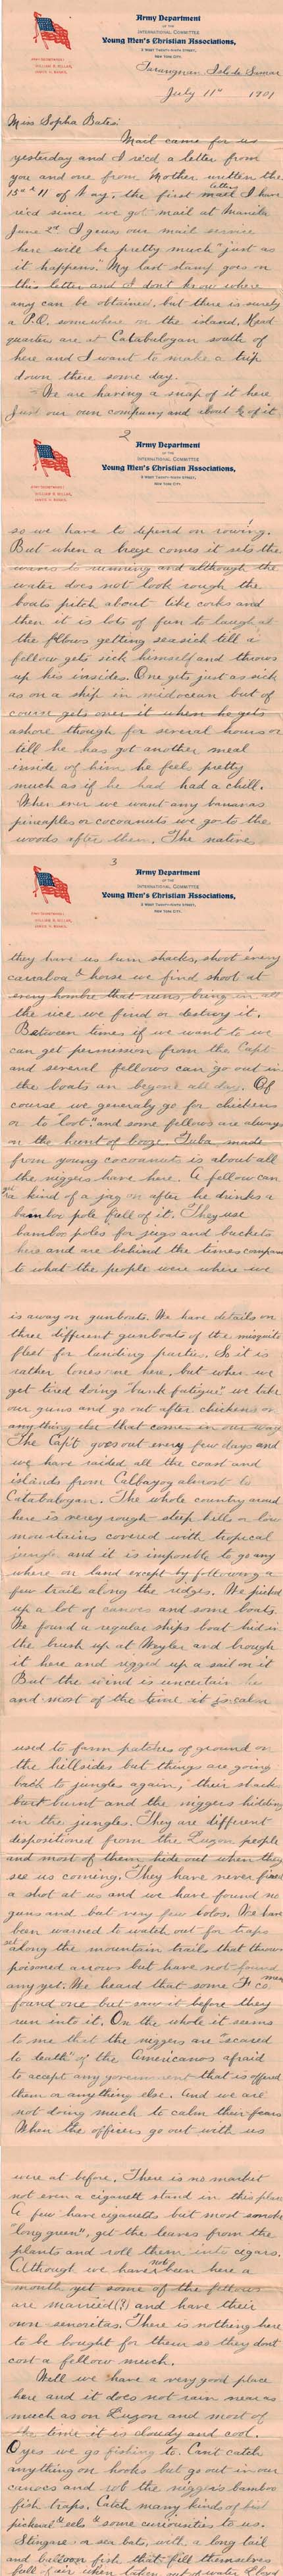 Army Department
OF THE
INTERNATIONAL COMMITTEE
Young Men's Christian Associations,
3 WEST TWENTY-NINTH STREET,
NEW YORK CITY.
ARMY DEPARTMENT
WILLIAM B. MILLAR,
Tarangnan Isle de Samar
July 11th 1901
Miss Sopha Bates:
Mail came for us
yesterday and I rec'd a letter from
you and one from Mother written the
15th & 11 of May, the first mail letters I have
rec'd since we got mail at Manila
June 2nd I guess our mail service
here will be pretty much "just as
it happens." My last stamp goes on
this letter and I don't know where
any can be obtained, but there is surely
a P.O. somewhere on the island. Head
quarters are at Catabalogan south of
here and I want to make a trip
down there some day.
We are having a snap of it here
Just our own company and about ½ of it
2
Army Department
OF THE
INTERNATIONAL COMMITTEE
Young Men's Christian Associations,
3 WEST TWENTY-NINTH STREET,
NEW YORK CITY.
ARMY DEPARTMENT
WILLIAM B. MILLAR,
so we have to depend on rowing.
But when a breeze comes it sets the
waves to running and although the
water does not look rough the
boats pitch about like corks and
then it is lots of fun to laugh at
the fellows getting seasick tell a
fellow gets sick himself and throws
up his insides. One gets just as sick
as on a ship in midocean but of
course gets over it when he gets
ashore though for several hours or
tell he has got another meal
inside of him he feels pretty
much as if he had had a chill.
When ever we want any bananas
pineapples or cocoanuts we go to the
woods after them. The native
3
Army Department
OF THE
INTERNATIONAL COMMITTEE
Young Men's Christian Associations,
3 WEST TWENTY-NINTH STREET,
NEW YORK CITY.
ARMY DEPARTMENT
WILLIAM B. MILLAR,
they have us burn shacks, shoot every
carraboa & horse we find shoot at
every hombre that runs, bring in all
the rice we find or destroy it.
Between times if we want to we
can get permission from the Capt
and several fellows can go out in
the boats an begone all day. Of
course we generaly go for chickens
or to "loot" and some fellows are always
on the hunt of booze. Tuba made
from young cocoanuts is about all
the niggers have here. A fellow can
get a kind of a jag on after he drinks a
bamboo pole full of it. They use
bamboo poles for jugs and buckets
here and are behind the times compare
to what the people were where we
is away on gunboats. We have details on
three different gunboats of the mosquito
fleet for landing parties. So it is
rather lonesome here, but when we
get tired doing "bunk fatigue" we take
our guns and go out after chickens or
anything else that comes in our way
The Capt goes out every few days and
we have raided all the coast and
islands from Calbayog almost to
Catabalogan. The whole country around
here is very rough steep hills or low
mountains covered with tropical
jungle and it is imposible to go any
where on land except by following a
few trails along the ridges. We picked
up a lot of canoes and some boats.
We found a regular ships boat hid in
the brush up at Weyler and brough
it here and rigged up a sail on it
But the wind is uncertain
and most of the time it is calm
used to farm patches of ground on
the hillsides but things are going
back to jungles again, their shack
burnt and the niggers hidding
in the jungles. They are different
despositioned from the Luzon people
and most of them hide out when they
see us coming. They have never fired
a shot at us and we have found no
guns and but very few bolos. We have
been warned to watch out for traps
set along the mountain trails that throw
poisoned arrows but have not found
any yet. We heard that some F co. men
found one but saw it before they
run into it. On the whole it seems
to me that the niggers are "scared
to death" of the Americanos afraid
to accept any government that is offered
them or anything else. And we are
not doing much to calm their fears
When the officers go out with us
were at before. There is no market
not even a cigarett stand in this place
A few have cigaretts but most smoke
"long green", get the leaves from the
plants and roll them into cigars.
Although we have not been here a
month yet some of the fellows
are married(?) and have their
own senoritas. There is nothing here
to be bought for them so they dont
cost a fellow much.
Well we have a very good place
here and it does not rain near as
much as on Luzon and most of
the time it is cloudy and cool.
O yes we go fishing to. Cant catch
anything on hooks but go out in our
canoes and rob the niggers bamboo
fish traps. Catch many kind of fish
pickeral & eels & some curiousities to us.
Stingree or sea bats, with a long tail
and balloon fish that fill themselves
full of air when taken out of water